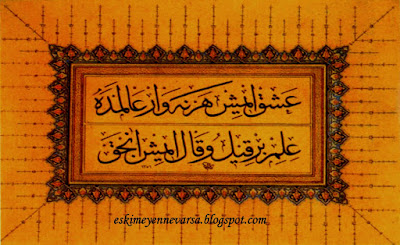 عشق ايمش هر نه وار عالمده
علم بر قيل و قال ايمش انجق
eskimeyennevarsa.blogspot.com